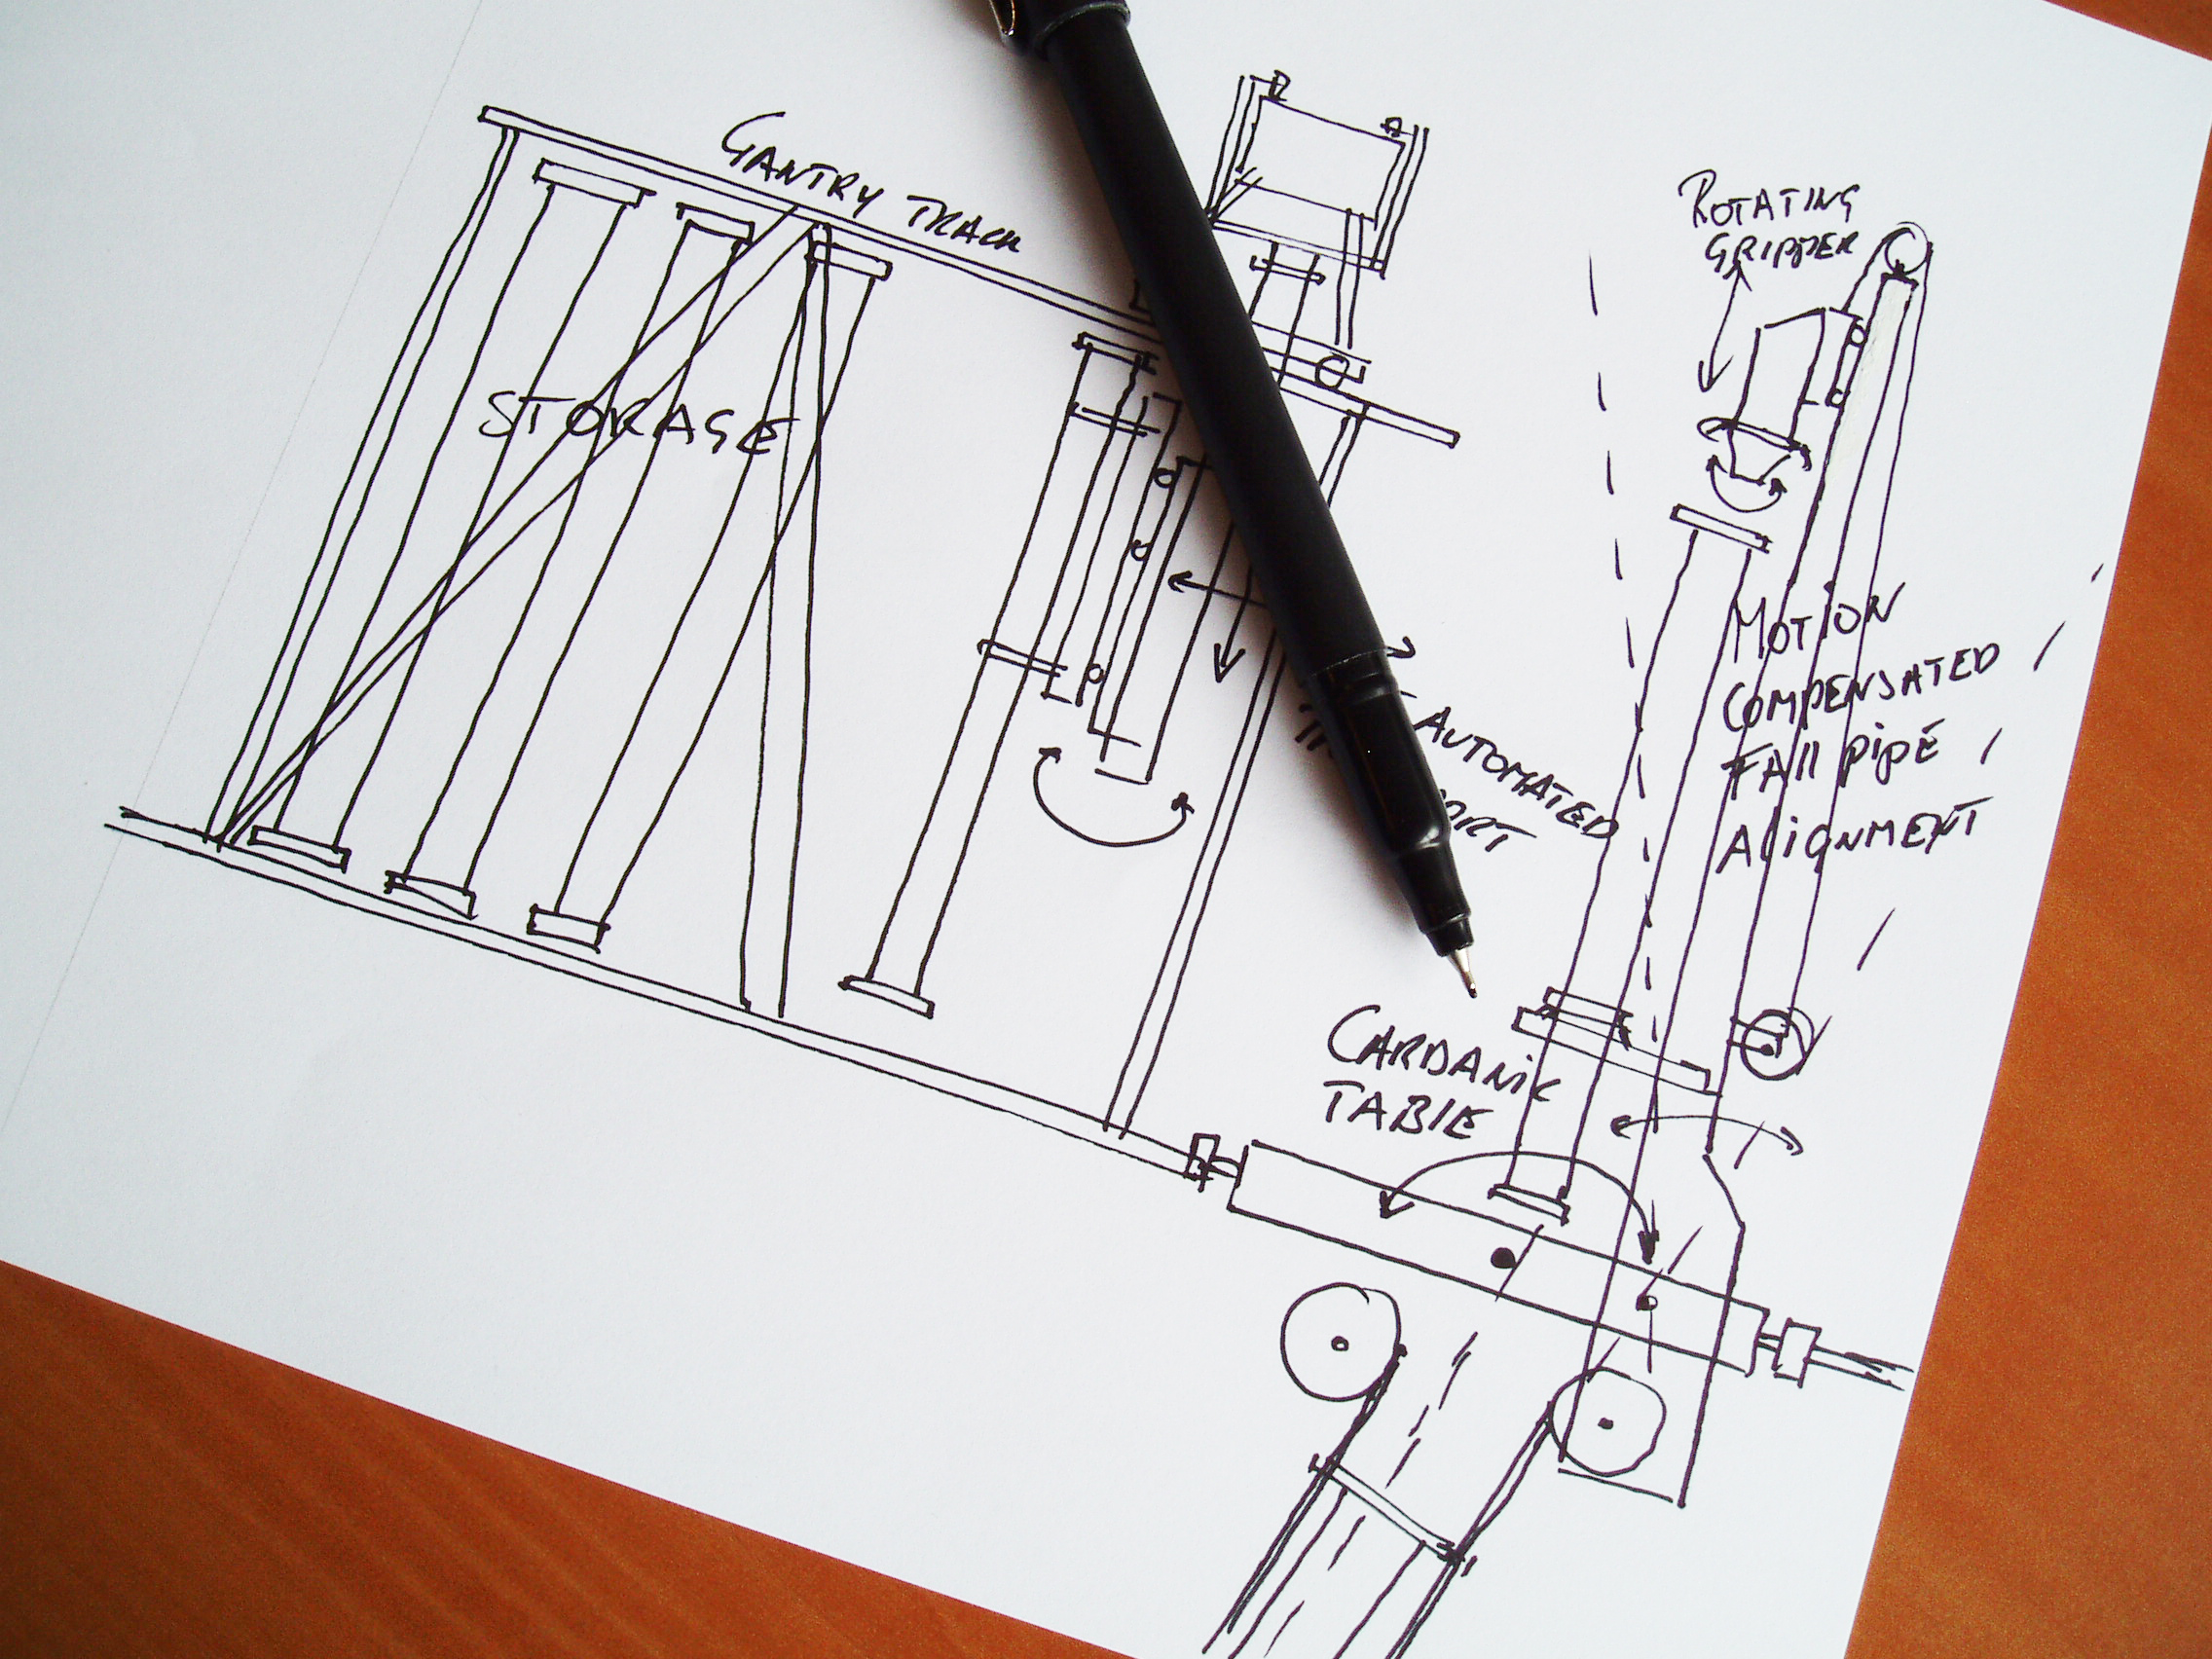 GANTRY TRACK
STORAGE
ROTATING
GRIPPER
MOTION
COMPENSATED
FAll pipE
AliGNMENT
AUTOMATED
CARDANiC
TABlE